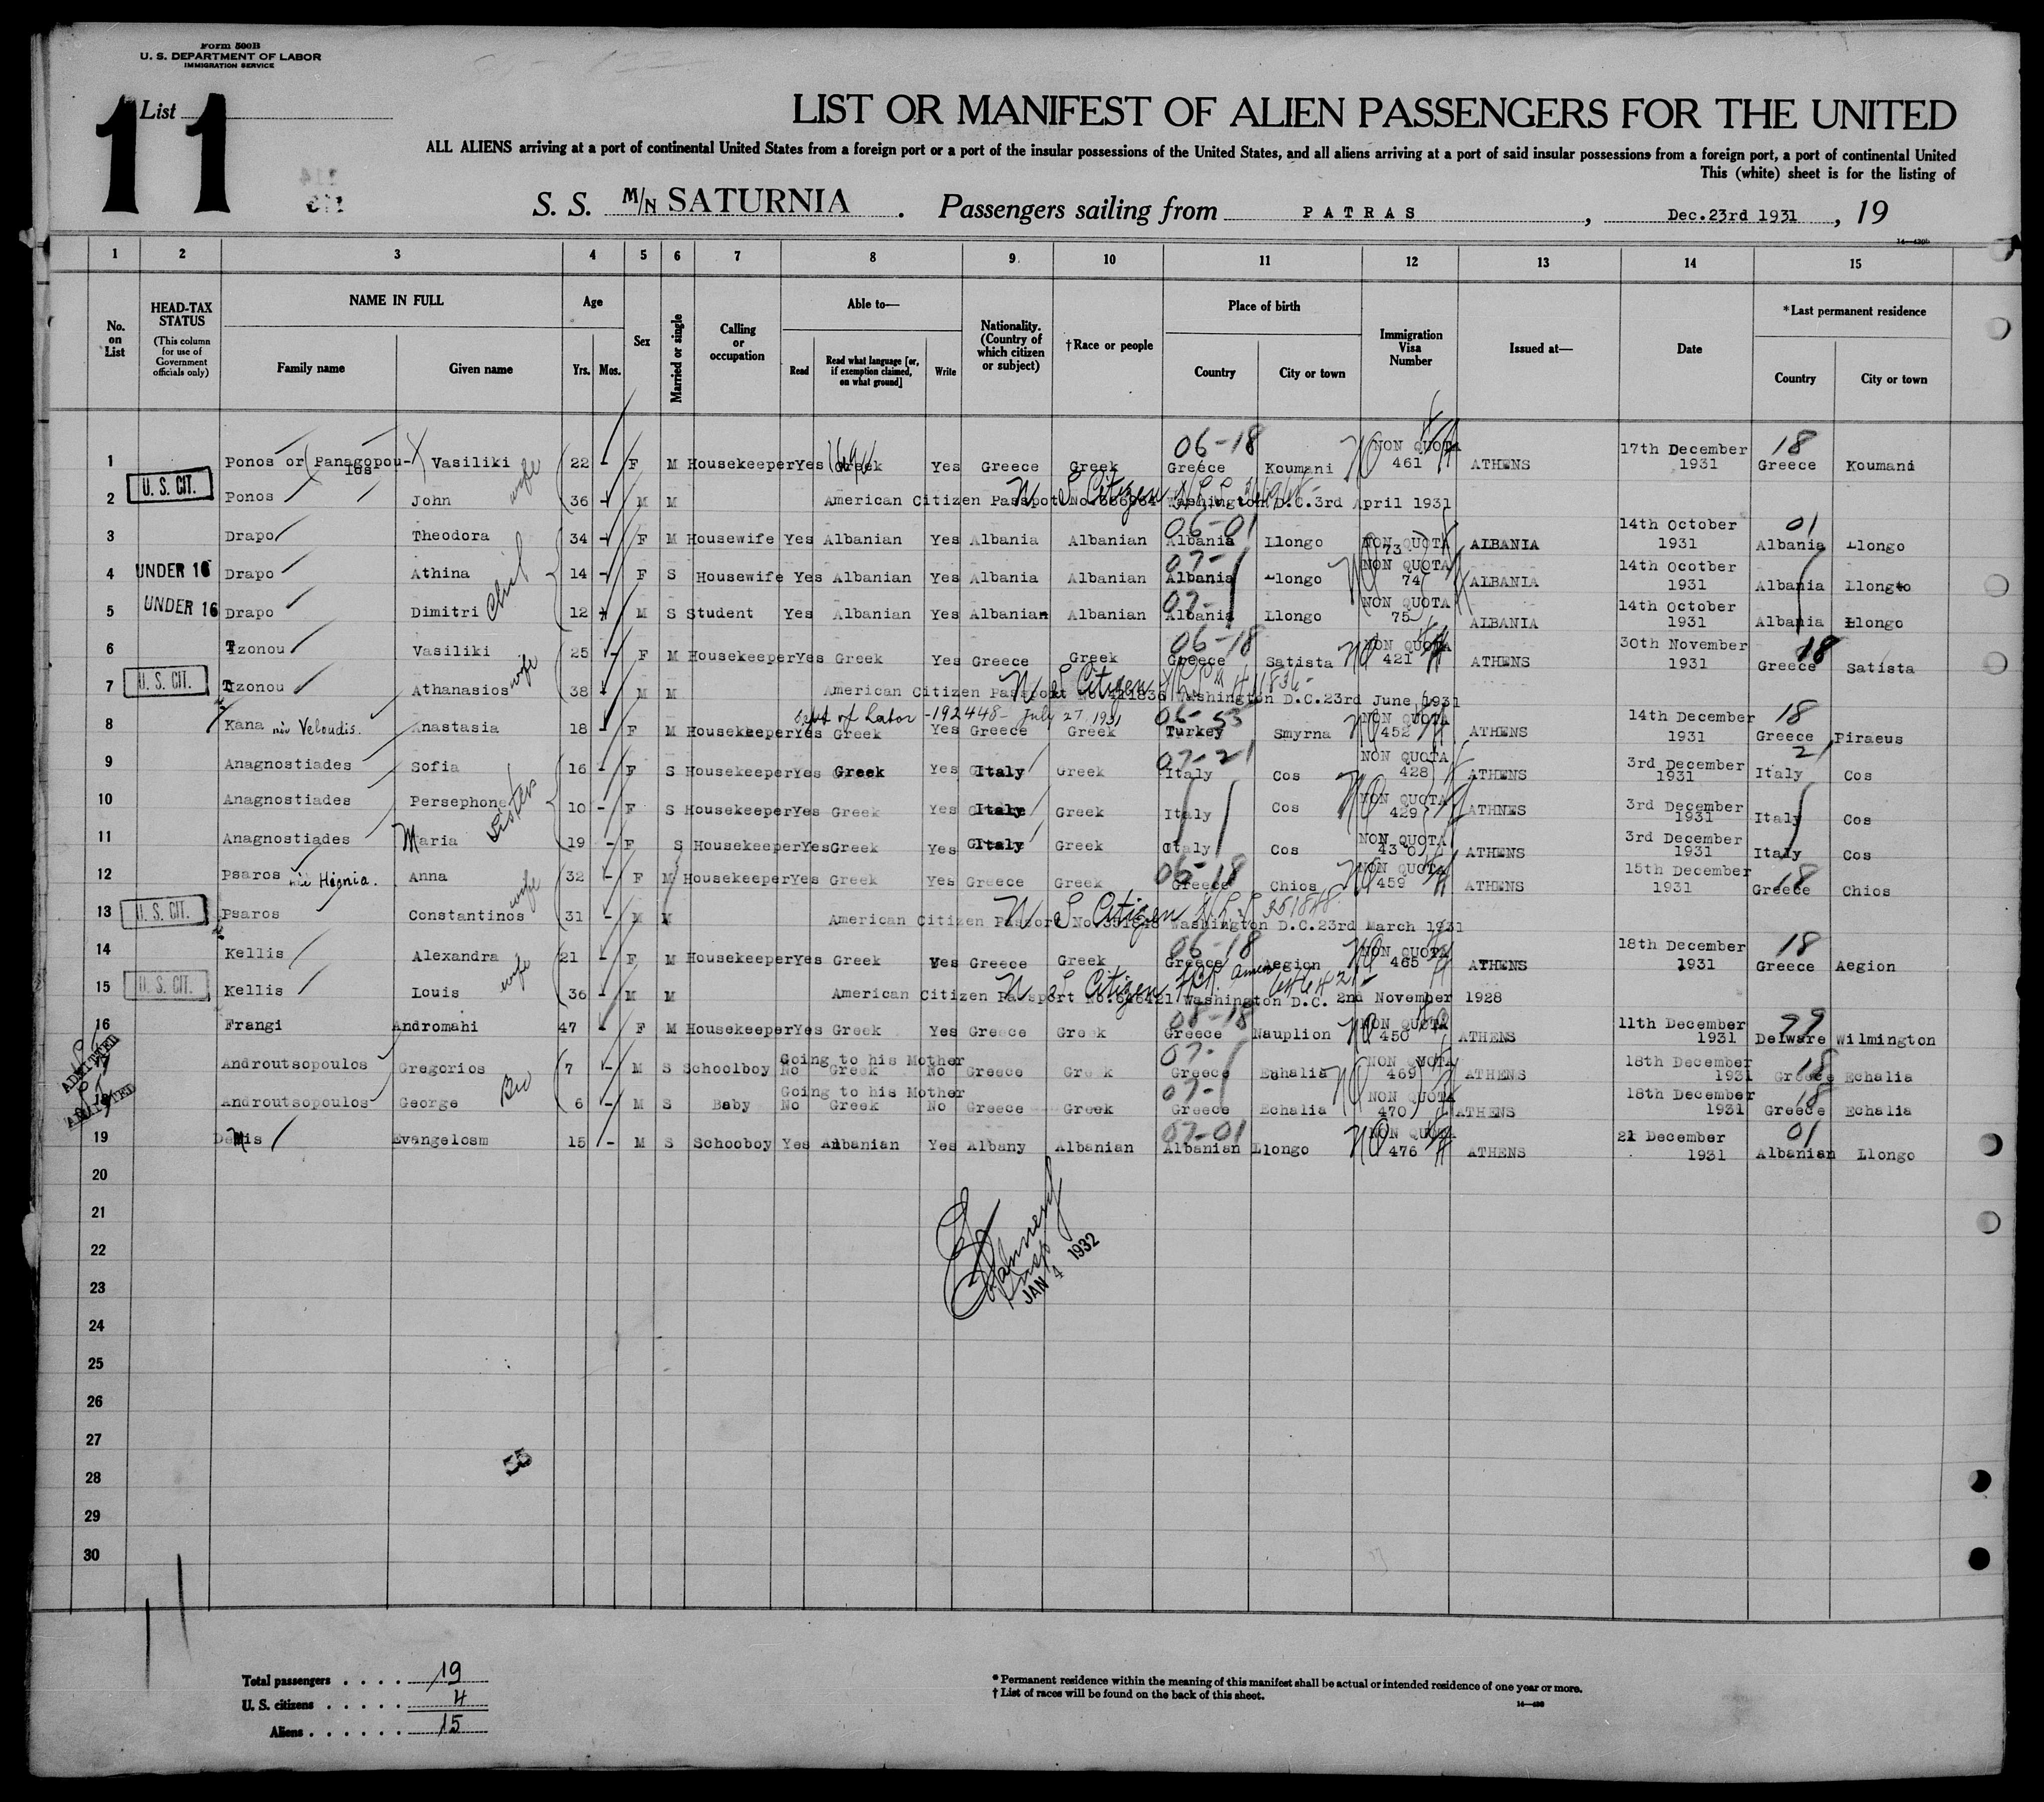 Form 500B
U. S. DEPARTMENT OF LABOR
IMMIGRATION SERVICE
List 11
LIST OR MANIFEST OF ALIEN PASSENGERS FOR THE UNITED
ALL ALIENS arriving at a port of continental United States from a foreign port or a port of the insular possessions of the United States, and all aliens arriving at a port of said insular possessions from a foreign port, a port of continental United
This (white) sheet is for the listing of
S. S. M/N SATURNIA . Passengers sailing from PATRAS , Dec.23rd 1931 , 19
1 2 3 4 5 6 7 8 9 10 11 12 13 14 15
No. on List
HEAD-TAX STATUS
(This column for use of Government officials only)
NAME IN FULL
Family name Given name
Age
Yrs. Mos.
Sex
Married or single
Calling or occupation
Able to—
Read Read what language [or, if exemption claimed, on what ground] Write
Nationality. (Country of which citizen or subject)
†Race or people
Place of birth
Country City or town
Immigration Visa Number
Issued at—
Date
*Last permanent residence
Country City or town
1 Ponos or (Panagopoulos) Vasiliki wife 22 - F M Housekeeper Yes Greek Yes Greece Greek 06-18 Greece Koumani NON QUOTA 461 ATHENS 17th December 1931 18 Greece Koumani
2 U. S. CIT. Ponos John 36 M M American Citizen Passport No. Washington D.C. 3rd April 1931
3 Drapo Theodora 34 - F M Housewife Yes Albanian Yes Albania Albanian 06-01 Albania Llongo NON QUOTA 73 ALBANIA 14th October 1931 01 Albania Llongo
4 UNDER 16 Drapo Athina 14 - F S Housewife Yes Albanian Yes Albania Albanian 07- Albania Llongo NON QUOTA 74 ALBANIA 14th Ocotber 1931 Albania Llongo
5 UNDER 16 Drapo Dimitri 12 M S Student Yes Albanian Yes Albanian Albanian 07- Albania Llongo NON QUOTA 75 ALBANIA 14th October 1931 Albania Llongo
6 Tzonou Vasiliki wife 25 - F M Housekeeper Yes Greek Yes Greece Greek 06-18 Greece Satista NON QUOTA 421 ATHENS 30th November 1931 18 Greece Satista
7 U. S. CIT. Tzonou Athanasios 38 M M American Citizen Passport No.411836 Washington D.C.23rd June 1931
Dept of Labor -192448- July 27 1931
8 Kana née Veloudis. Anastasia 18 - F M Housekeeper Yes Greek Yes Greece Greek 06-53 Turkey Smyrna NON QUOTA 452 ATHENS 14th December 1931 18 Greece Piraeus
9 Anagnostiades Sofia 16 - F S Housekeeper Yes Greek Yes Italy Greek 07-21 Italy Cos NON QUOTA 428 ATHENS 3rd December 1931 21 Italy Cos
10 Anagnostiades Persephone sister 10 - F S Housekeeper Yes Greek Yes Italy Greek Italy Cos NON QUOTA 429 ATHNES 3rd December 1931 Italy Cos
11 Anagnostiades Maria 19 - F S Housekeeper Yes Greek Yes Italy Greek Italy Cos NON QUOTA 430 ATHENS 3rd December 1931 Italy Cos
12 Psaros Anna wife 32 - F M Housekeeper Yes Greek Yes Greece Greek 06-18 Greece Chios NON QUOTA 459 ATHENS 15th December 1931 18 Greece Chios
13 U. S. CIT. Psaros Constantinos 31 - M M American Citizen Passort No.351848 Washington D.C.23rd March 1931
14 Kellis Alexandra wife 21 - F M Housekeeper Yes Greek Yes Greece Greek 06-18 Greece Aegion NON QUOTA 465 ATHENS 18th December 1931 18 Greece Aegion
15 U. S. CIT. Kellis Louis 36 - M M American Citizen Passport No.646421 Washington D.C. 2nd November 1928
16 Frangi Andromahi 47 - F M Housekeeper Yes Greek Yes Greece Greek 08-18 Greece Nauplion NON QUOTA 450 ATHENS 11th December 1931 99 Delware Wilmington
ADMITTED Androutsopoulos Gregorios 7 - M S Schoolboy Going to his Mother No Greek No Greece Greek 07- Greece Echalia NON QUOTA 469 ATHENS 18th December 1931 18 Greece Echalia
ADMITTED Androutsopoulos George Bro 6 - M S Baby Going to his Mother No Greek No Greece Greek 07- Greece Echalia NON QUOTA 470 ATHENS 18th December 1931 18 Greece Echalia
19 Evangelosm 15 - M S Schooboy Yes Albanian Yes Albany Albanian 07-01 Albanian Llongo NON QUOTA 476 ATHENS 21 December 1931 01 Albanian Llongo
20
21
22
JAN 4 1932
23
24
25
26
27
28
29
30
Total passengers . . . . 19
U. S. citizens . . . . . 4
Aliens . . . . . . 15
* Permanent residence within the meaning of this manifest shall be actual or intended residence of one year or more.
† List of races will be found on the back of this sheet.